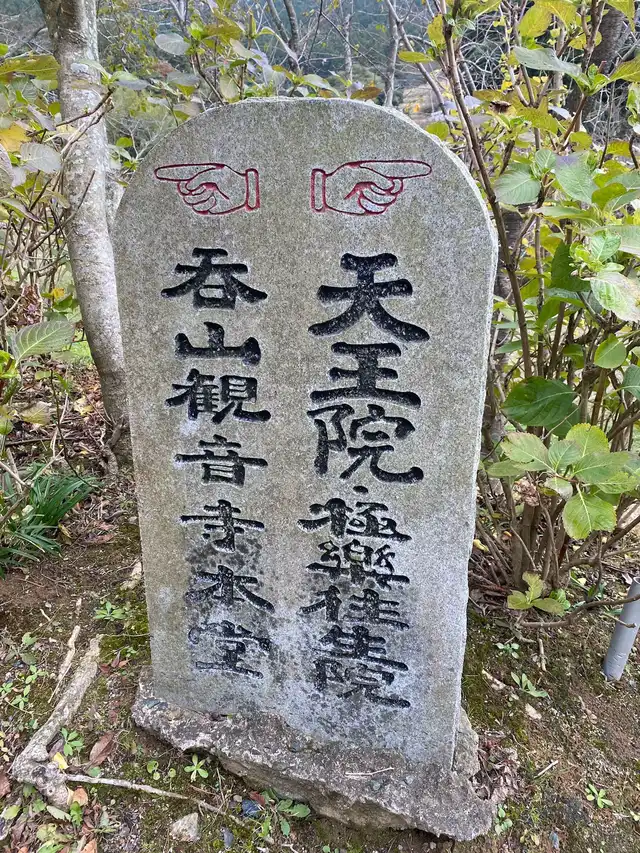 天王院・極樂往生院
呑山観音寺本堂